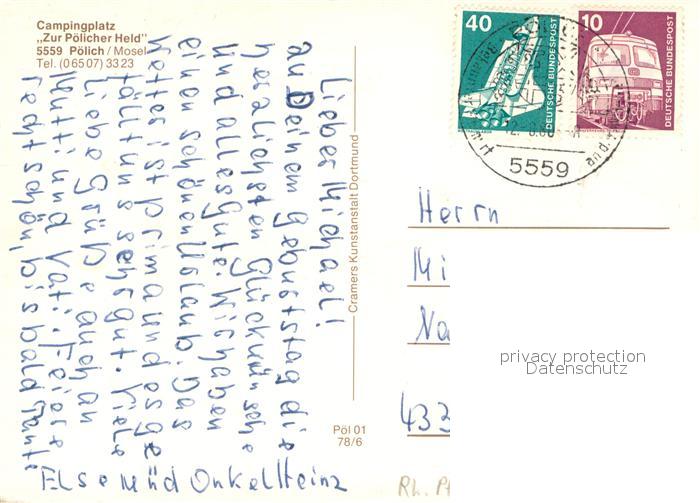 Campingplatz
„Zur Pölicher Held"
5559 Pölich / Mosel
Tel. (06507) 3323
Lieber Michael!
an Deinem Geburtstag die
herzlichsten Glückwünsche
und alles gute. Wir haben
einen schönen Urlaub. Das
Wetter ist prima und es ge
fällt uns sehr gut. Viele
Liebe Grüße auch an
Mutti und Vati. Feiere
recht schön, bis bald Tante
Else und Onkel Heinz
Cramers Kunstanstalt Dortmund
Pöl 01
78/6
40
DEUTSCHE BUNDESPOST
10
DEUTSCHE BUNDESPOST
5559
Herrn
Mi
Na
433
privacy protection
Datenschutz